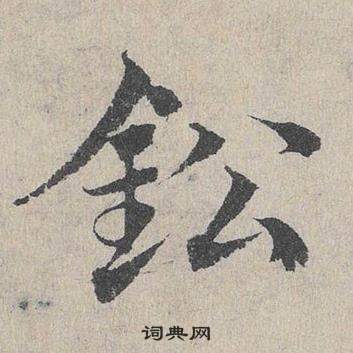 鈆
词典网